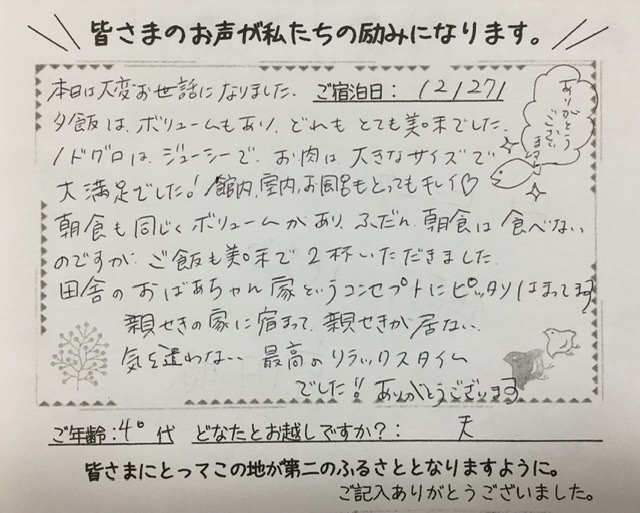 皆さまのお声が私たちの励みになります。
本日は大変お世話になりました。 ご宿泊日： 12/27/
夕飯は、ボリュームもあり、どれもとても美味でした。
ノドグロは、ジューシーで、お肉は大きなサイズで
大満足でした！館内、室内、お風呂もとってもキレイ♡
ありがとうございます
朝食も同じくボリュームがあり、ふだん、朝食は食べない
のですが、ご飯も美味で2杯いただきました。
田舎のおばあちゃん家というコンセプトにピッタリはまってます
親せきの家に宿まって、親せきが居ない、
気を遣わない、最高のリラックスタイム
でした!! ありがとうございます。
ご年齢：40代 どなたとお越しですか？： 夫
皆さまにとってこの地が第二のふるさととなりますように。
ご記入ありがとうございました。